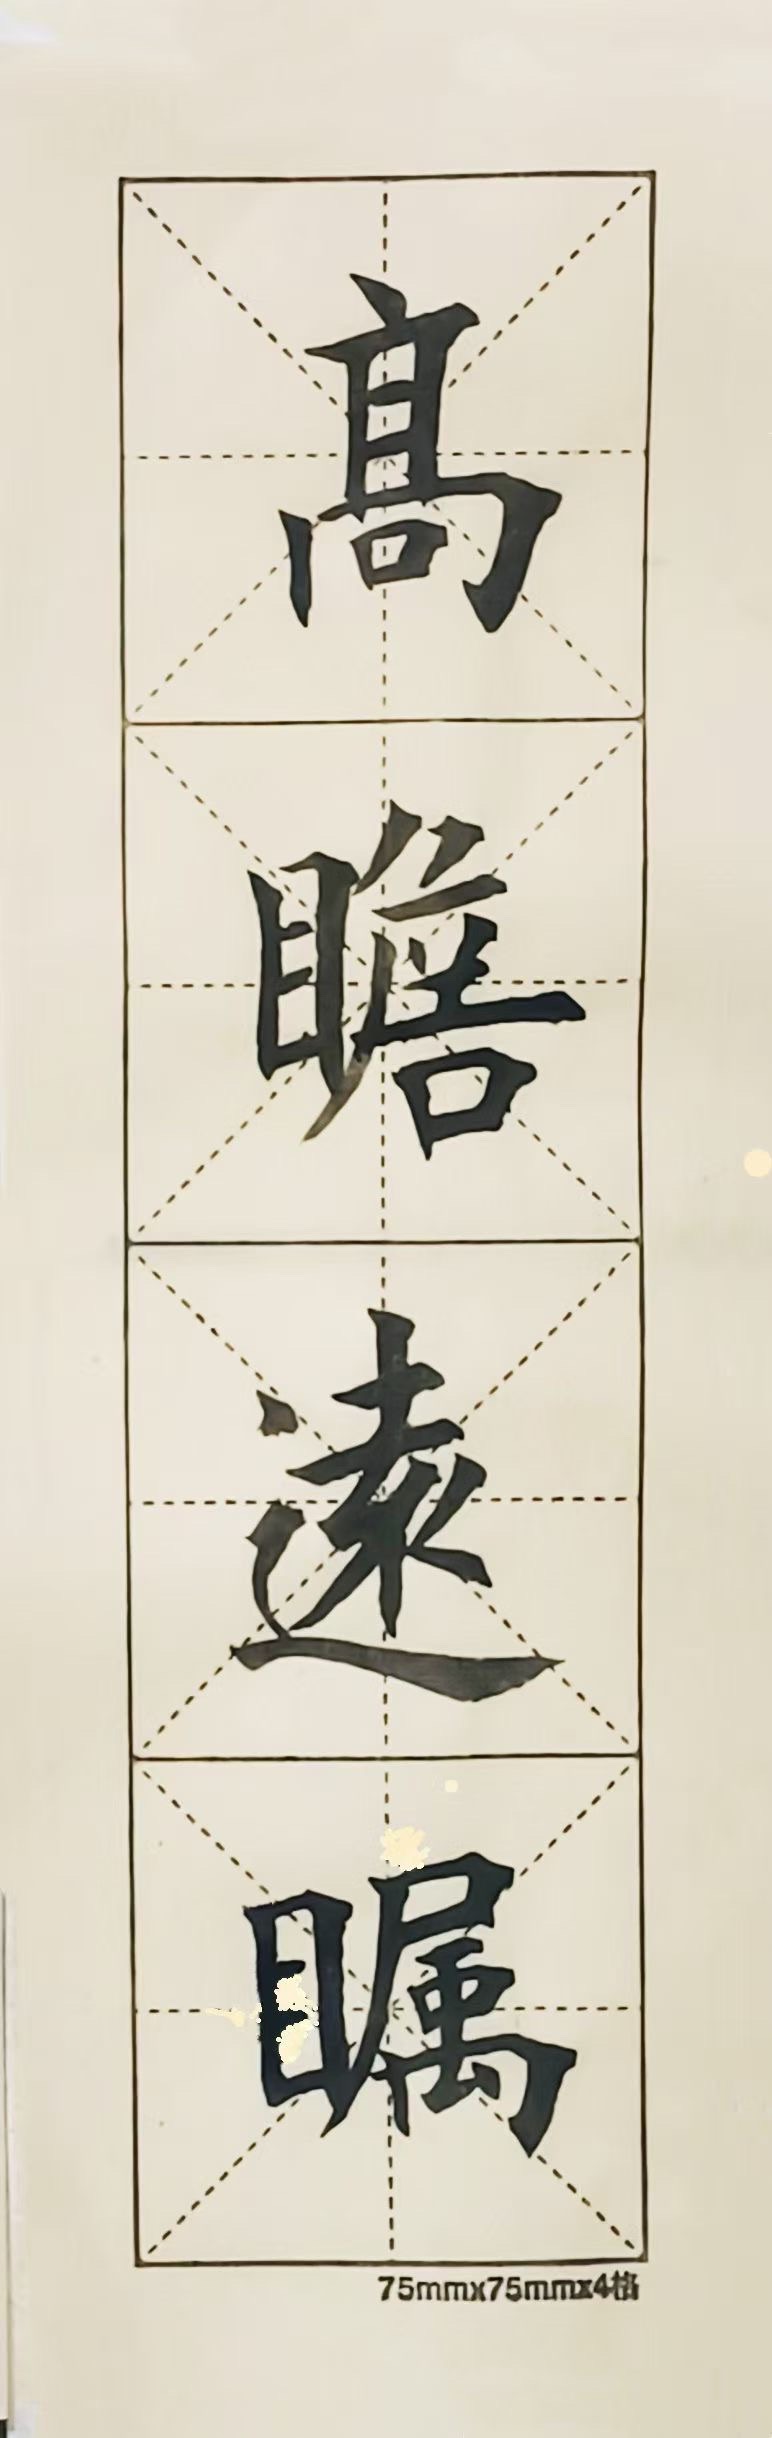 髙瞻遠瞩
75mmx75mmx4格